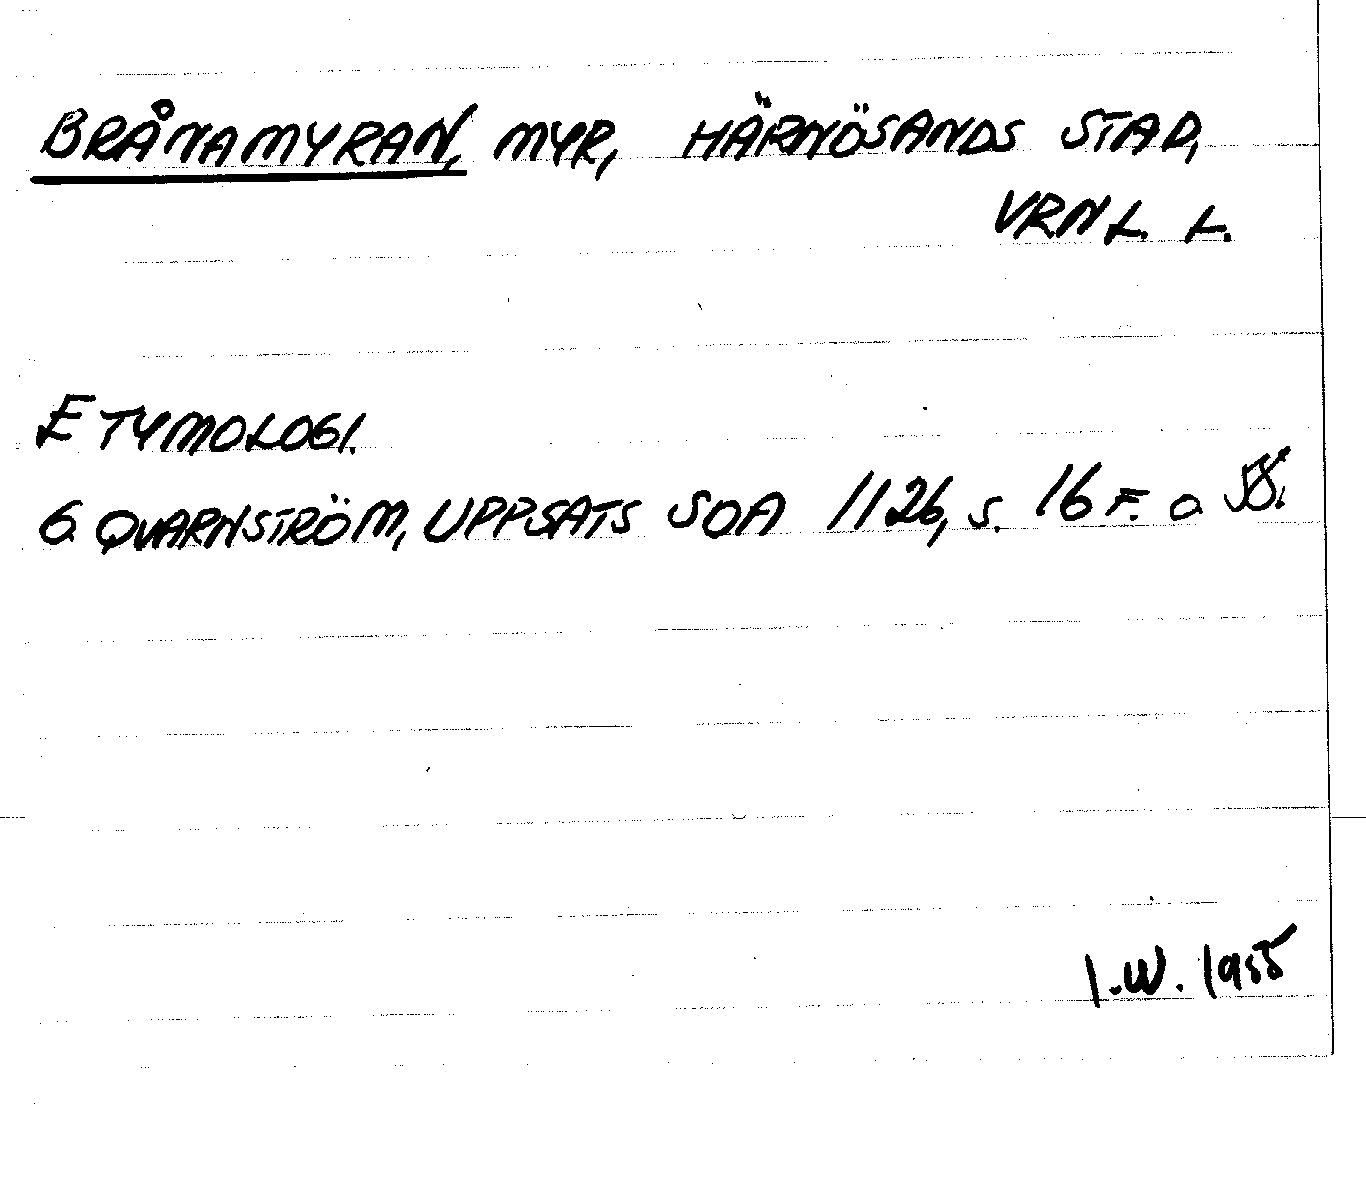 BRÅNAMYRAN, MYR, HÄRNÖSANDS STAD,
VRNL. L.
ETYMOLOGI.
G QVARNSTRÖM, UPPSATS SOA 1126, S. 16 F. O
I.W. 1955